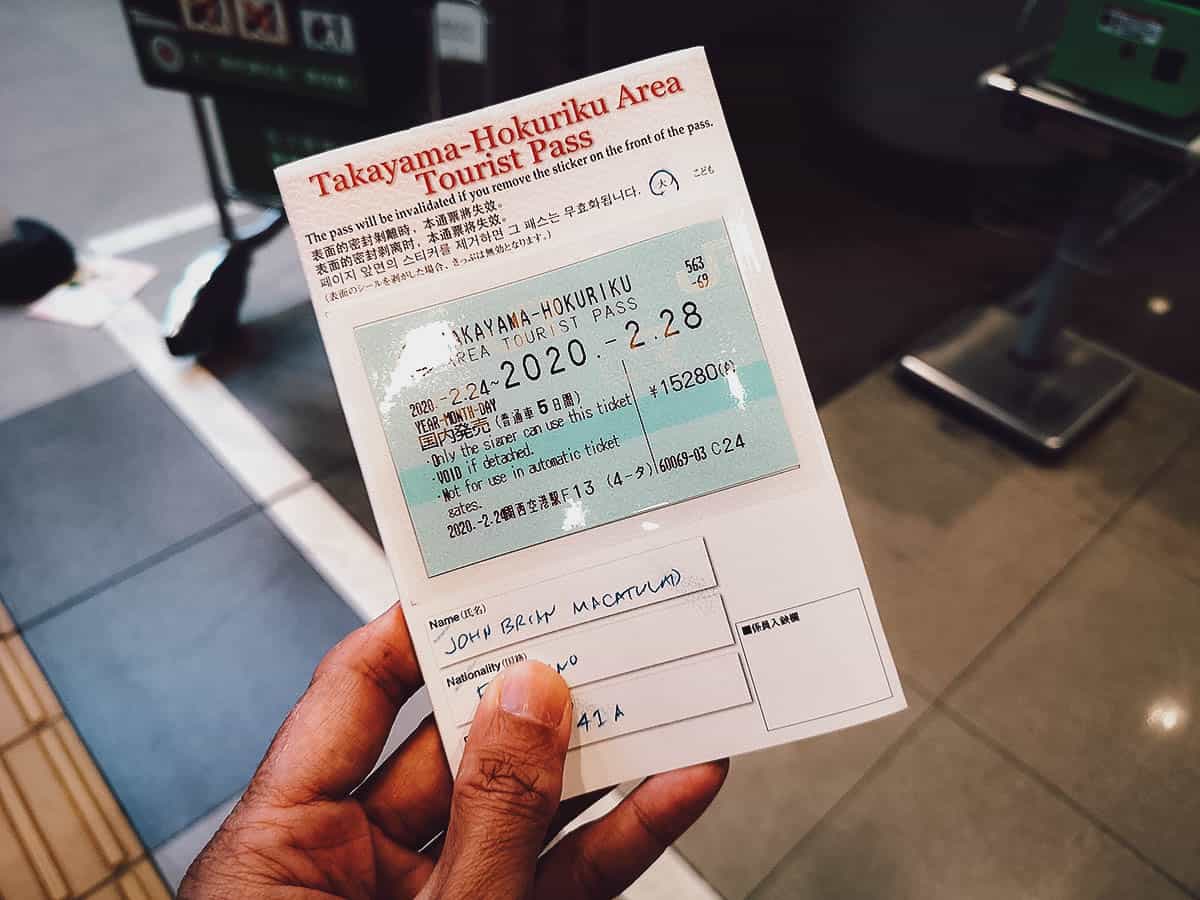 Takayama-Hokuriku Area
Tourist Pass
The pass will be invalidated if you remove the sticker on the front of the pass.
表面的密封剝離時，本通票將失效。
表面的密封剥离时，本通票将失效。
페이지 앞면의 스티커를 제거하면 그 패스는 무효화됩니다.
(表面のシールを剥がした場合、きっぷは無効となります。)
大 こども
TAKAYAMA-HOKURIKU
AREA TOURIST PASS
563
-69
2020.-2.24~2020.-2.28
YEAR-MONTH-DAY
国内発売 (普通車5日間)
¥15280(A)
·Only the signer can use this ticket
·VOID if detached.
·Not for use in automatic ticket
gates.
2020.-2.24関西空港駅F13 (4-タ) 60069-03 C24
Name(氏名)
JOHN BRIAN MACATULAD
Nationality(国籍)
41A
■係員入鋏欄